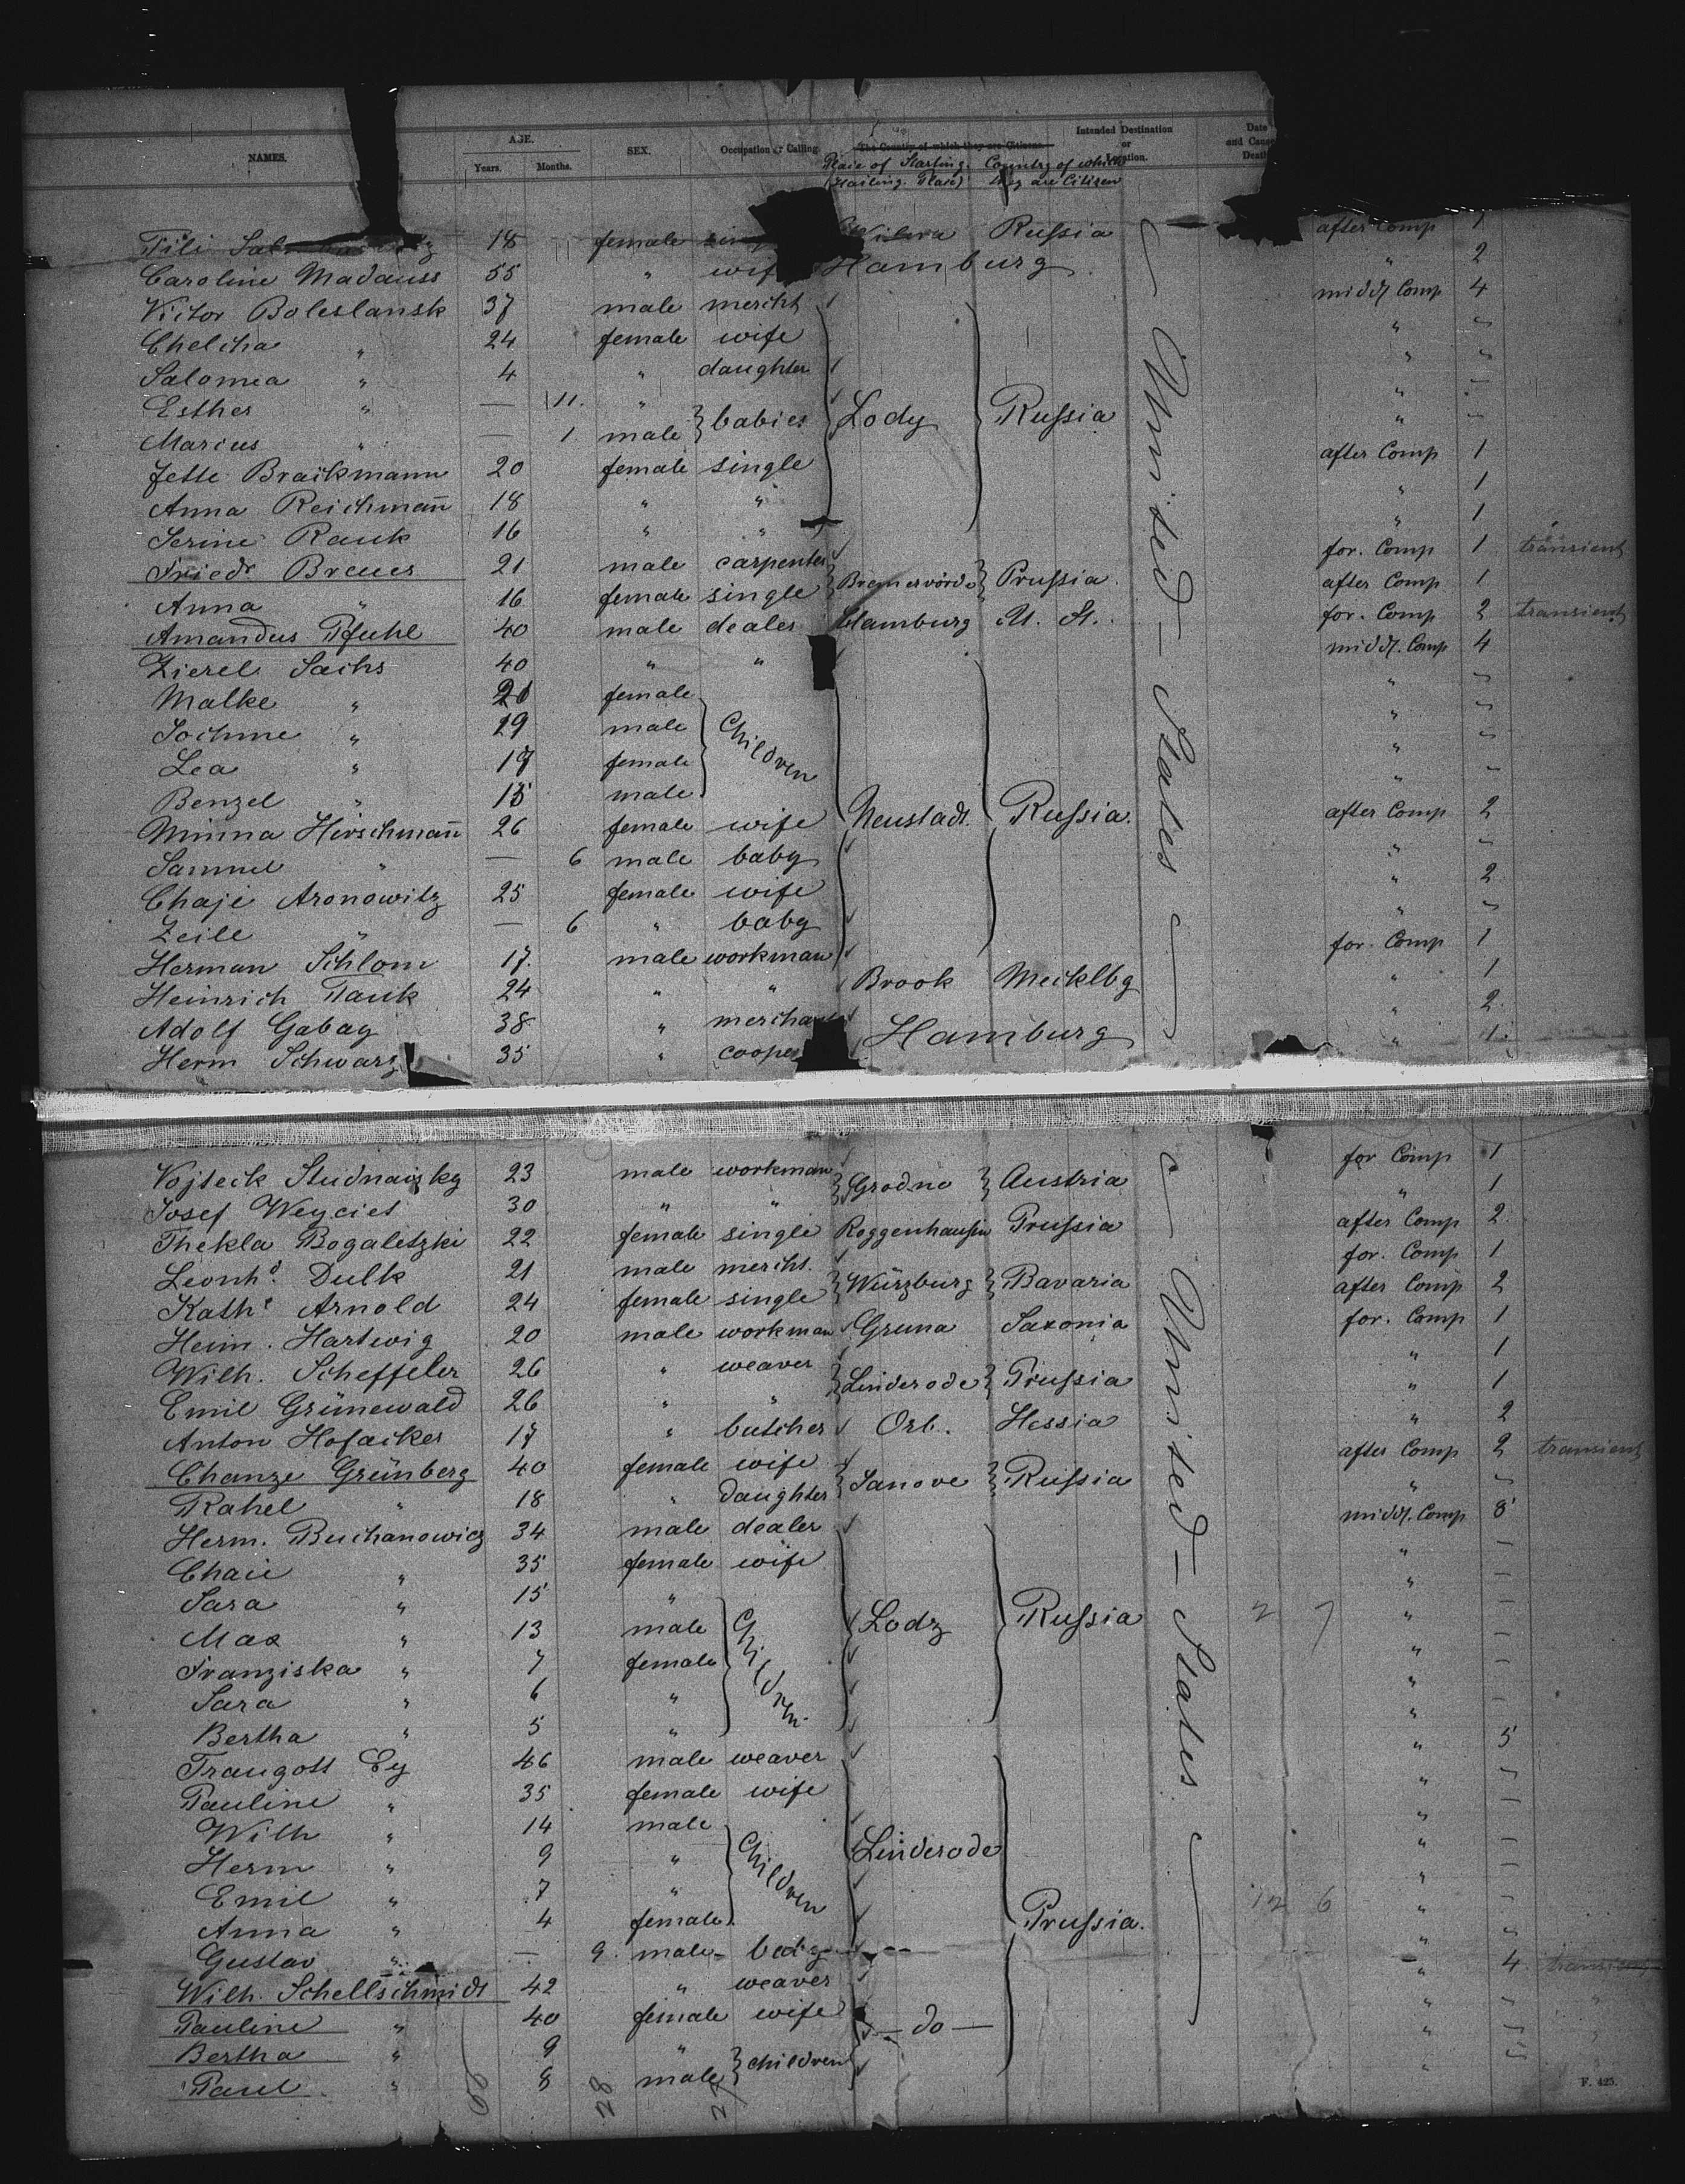 NAMES. AGE. Years. Months. SEX. Occupation or Calling. The Country of which they are Citizens. Intended Destination or Location. Date and Cause Death
Place of Starting. (Hailing Place) Country of which they are Citizen
18 female Wilna Russia after Comp 1
Caroline Madauss 55 " wife Hamburg " 2
Victor Boleslansk 37 male mercht midd. Comp 4
Chelcha " 24 female wife " "
Salomea " 4 " daughter " "
Esther " — 11. " babies Lody Russia "
Marius " — 1 male "
Jette Brackmann 20 female single after Comp 1
Anna Reichmañ 18 " " " 1
Serine Rauk 16 " " " 1
Friedr Breuer 21 male carpenter Bremervörde Prussia for. Comp 1 transient
Anna " 16 female single after Comp 1
Amandus Pfuhl 40 male dealer Hamburg U. St. for. Comp 2 transient
Zierel Sachs 40 " " midd. Comp 4
Malke " 20 female Children " "
Sochme " 19 male " "
Lea " 17 female " "
Benzel " 15 male "
Minna Hirschmañ 26 female wife Neustadt Russia. after Comp 2
Samuel " — 6 male baby " "
Chaje Aronowitz 25 female wife " 2
Zeile " — 6 " baby " "
Herman Schlom 17. male workman for. Comp 1
Heinrich Pauk 24 " " Brook Mecklbg " 1
Adolf Gabay 38 " merchant Hamburg " 2
Herm Schwarz 35 " cooper " 1.
United States
Vojteck 23 male workman Grodno Austria for Comp 1
Josef Weyciet 30 " " " 1
Thekla Bogaletzki 22 female single Roggenhausen Prussia after Comp 2
Leonhd. Dulk 21 male mercht. Würzburg Bavaria for. Comp 1
Kathe Arnold 24 female single after Comp 2
Heinr. Hartwig 20 male workman Gruna Saxonia for. Comp 1
Wilh. Scheffeler 26 " weaver Linderode Prussia " 1
Emil Grünewald 26 " " " 1
Anton Hofacker 17 " butcher Orb. Hessia " 2
Chanze Grünberg 40 female wife Janove Russia after Comp 2 transient
Rahel " 18 " daughter " "
Herm. Buchanowicz 34 male dealer midd. Comp 8
Chaie " 35 female wife " —
Sara " 15 " Children " —
Max " 13 male Lodz Russia 2 7 " —
Franziska " 7 female " —
Sara " 6 " " —
Bertha " 5 " " —
Traugott Ey 46 male weaver " 5
Pauline " 35 female wife "
Wilh " 14 male Children "
Herm " 9 " Linderode "
Emil " 7 " "
Anna " 4 female Prussia. 12 6 "
Gustav " — 9. male baby "
Wilh. Schellschmidt 42 " weaver " 4 transient
Pauline " 40 female wife — do — "
Bertha " 9 " children "
Paul " 8 male "
United States
28
F. 425.